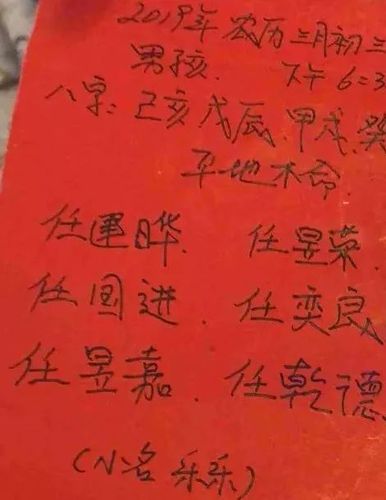 2019年 农历 三月初三
男孩. 下午 6:3
八字: 己亥 戊辰. 甲戌. 癸
平地木命.
任運晔. 任昱荣.
任国进. 任奕良
任昱嘉. 任乾德.
(小名 乐乐)